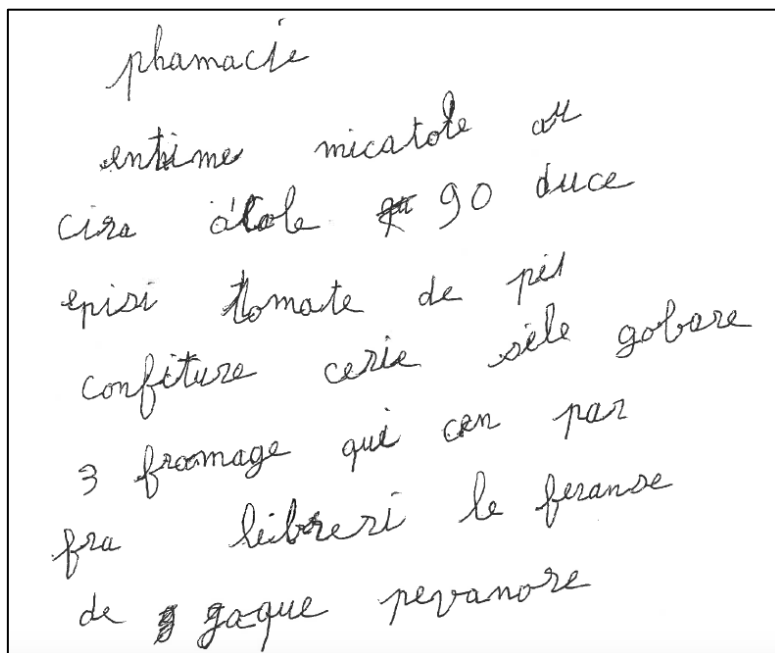 phamacie
entime micatole ou
cira alcole 90 duce
episi tomate de pei
confiture cerie sèle gobare
3 froomage qui cen par
fra leibreri le feranse
de gaque pevanore